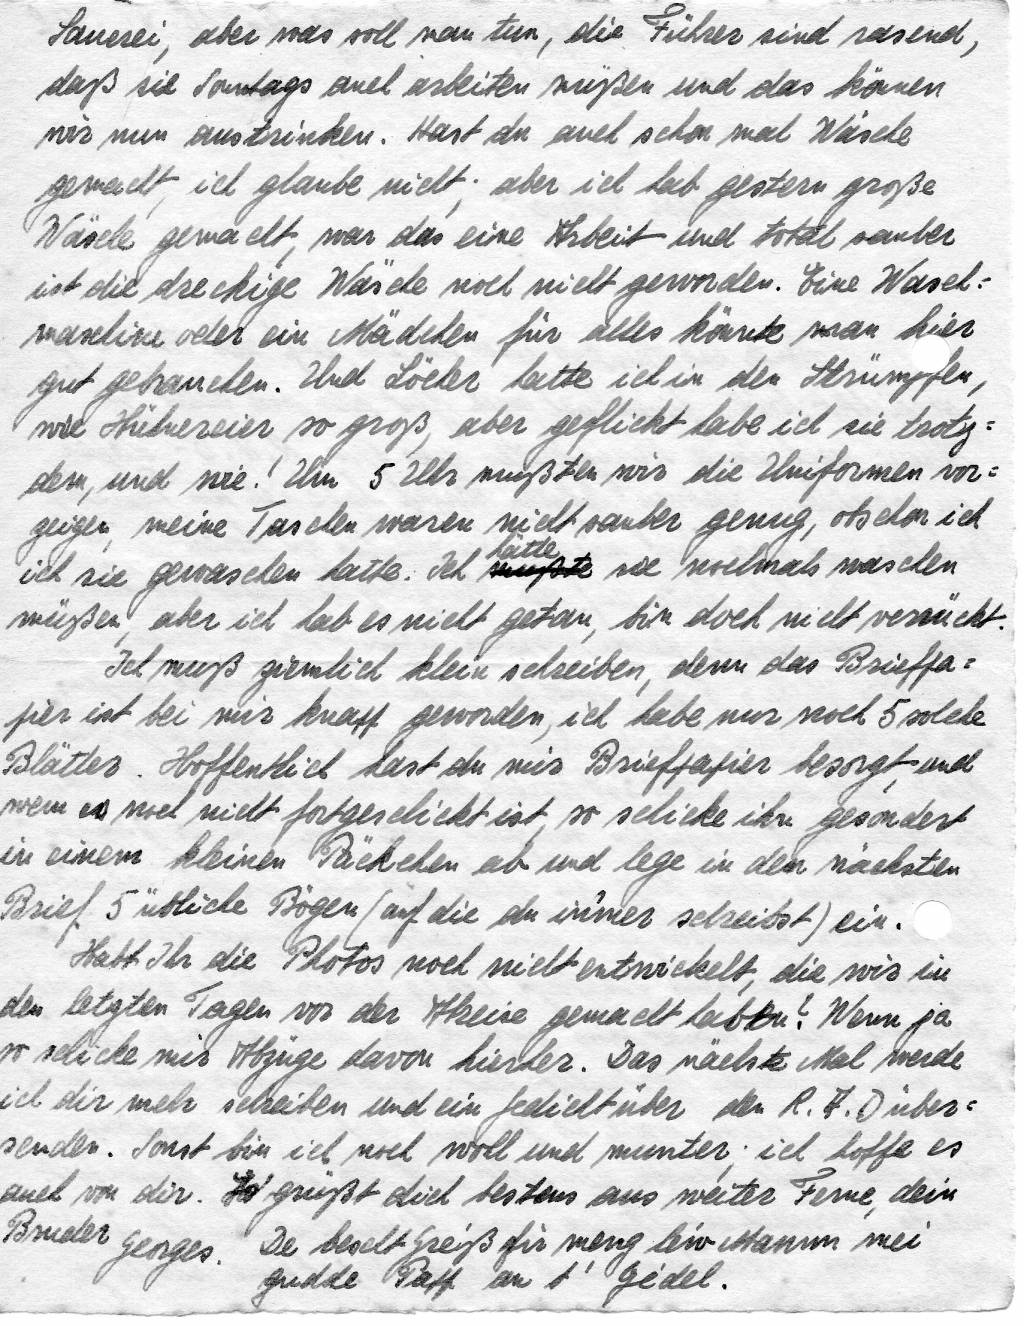 Sauerei, aber was soll man tun, die Führer sind rasend,
daß sie Sonntags auch arbeiten müßen und das können
wir nun austrinken. Hast du auch schon mal Wäsche
gemacht, ich glaube nicht; aber ich hab gestern große
Wäsche gemacht, war das eine Arbeit und total sauber
ist die dreckige Wäsche noch nicht geworden. Eine Wasch=
maschine oder ein Mädchen für alles könnte man hier
gut gebrauchen. Und Löcher hatte ich in den Strümpfen,
wie Hühnereier so groß, aber geflickt habe ich sie trotz=
dem, und wie! Um 5 Uhr mußten wir die Uniformen vor=
zeigen, meine Taschen waren nicht sauber genug, obschon ich
ich sie gewaschen hatte. Ich mußte hätte sie nochmals waschen
müßen, aber ich hab es nicht getan, bin doch nicht verrückt.
Ich muß ziemlich klein schreiben, denn das Briefpa=
pier ist bei mir knapp geworden, ich habe nur noch 5 solche
Blätter. Hoffentlich hast du mir Briefpapier besorgt, und
wenn es noch nicht fortgeschickt ist, so schicke ihn gesondert
in einem kleinen Päckchen ab und lege in den nächsten
Brief 5 übliche Bögen (auf die du immer schreibst) ein.
Habt Ihr die Photos noch nicht entwickelt, die wir in
den letzten Tagen vor der Abreise gemacht haben? Wenn ja
so schicke mir Abzüge davon hierher. Das nächste Mal werde
ich dir mehr schreiben und ein Gedicht über den R.A.D über=
senden. Sonst bin ich noch woll und munter; ich hoffe es
auch von dir. Es grüßt dich bestens aus weiter Ferne, dein
Bruder Georges. De bescht Greiß fir meng léiw Mamm mei
gudde Papp an t' Gédel.